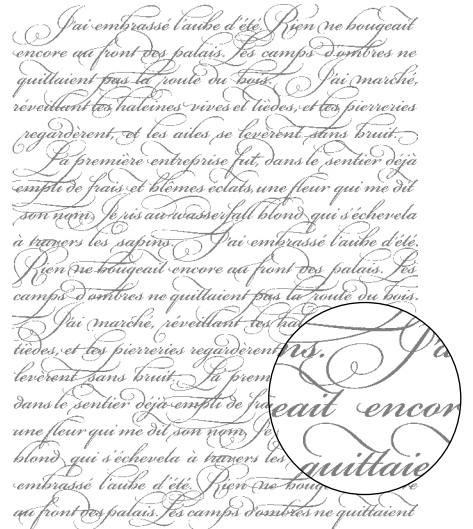 J'ai embrassé l'aube d'été. Rien ne bougeait
encore au front des palais. Les camps d'ombres ne
quittaient pas la route du bois. J'ai marché,
réveillant les haleines vives et tièdes, et les pierreries
regardèrent, et les ailes se levèrent sans bruit.
La première entreprise fut, dans le sentier déjà
empli de frais et blêmes éclats, une fleur qui me dit
son nom. Je ris au wasserfall blond qui s'échevela
à travers les sapins. J'ai embrassé l'aube d'été.
Rien ne bougeait encore au front des palais. Les
camps d'ombres ne quittaient pas la route du bois.
J'ai marché, réveillant les hal
tièdes, et les pierreries regardèrent
ns. J'a
levèrent sans bruit. La prem
dans le sentier déjà empli de fra
eait encor
une fleur qui me dit son nom. Je
blond qui s'échevela à travers les
quittaie
embrassé l'aube d'été. Rien ne boug re
au front des palais. Les camps d'ombres ne quittaient